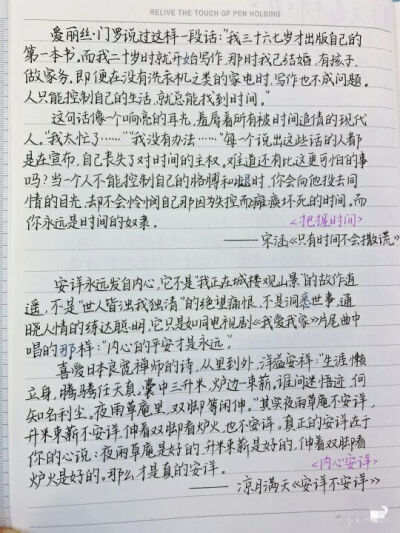 RELIVE THE TOUCH OF PEN HOLDING
爱丽丝·门罗说过这样一段话:"我三十六七岁才出版自己的
第一本书。而我二十岁时就开始写作,那时我已结婚,有孩子,
做家务。即便在没有洗衣机之类的家电时,写作也不成问题。
人只能控制自己的生活,就总能找到时间。"
这句话像个响亮的耳光,羞辱着所有被时间追债的现代
人。"我太忙了……""我没有办法……"每一个说出这些话的人都
是在宣布,自己丧失了对时间的主权。难道还有比这更可怕的事
吗?当一个人不能控制自己的胳膊和腿时,你会向他投去同
情的目光,却不会怜悯自己那因为失控而瘫痪坏死的时间。而
你永远是时间的奴隶。
<把握时间>
——宋涵《只有时间不会撒谎》
安详永远发自内心,它不是"我正在城楼观山景"的故作逍
遥,不是"世人皆浊我独清"的绝望痛恨,不是洞悉世事、通
晓人情的练达聪明,它只是如同电视剧《我爱我家》片尾曲中
唱的那样:"内心的平安才是永远。"
喜爱日本良宽禅师的诗,从里到外,洋溢安详:"生涯懒
立身,腾腾任天真。囊中三升米,炉边一束薪。谁问迷悟迹,何
知名利尘。夜雨草庵里,双脚等闲伸。"其实夜雨草庵不安详,
升米束薪不安详,伸着双脚看炉火,也不安详。真正的安详在于
你的心说:夜雨草庵是好的,升米束薪是好的,伸着双脚看
炉火是好的。那么才是真的安详。
<内心安详>
——凉月满天《安详不安详》